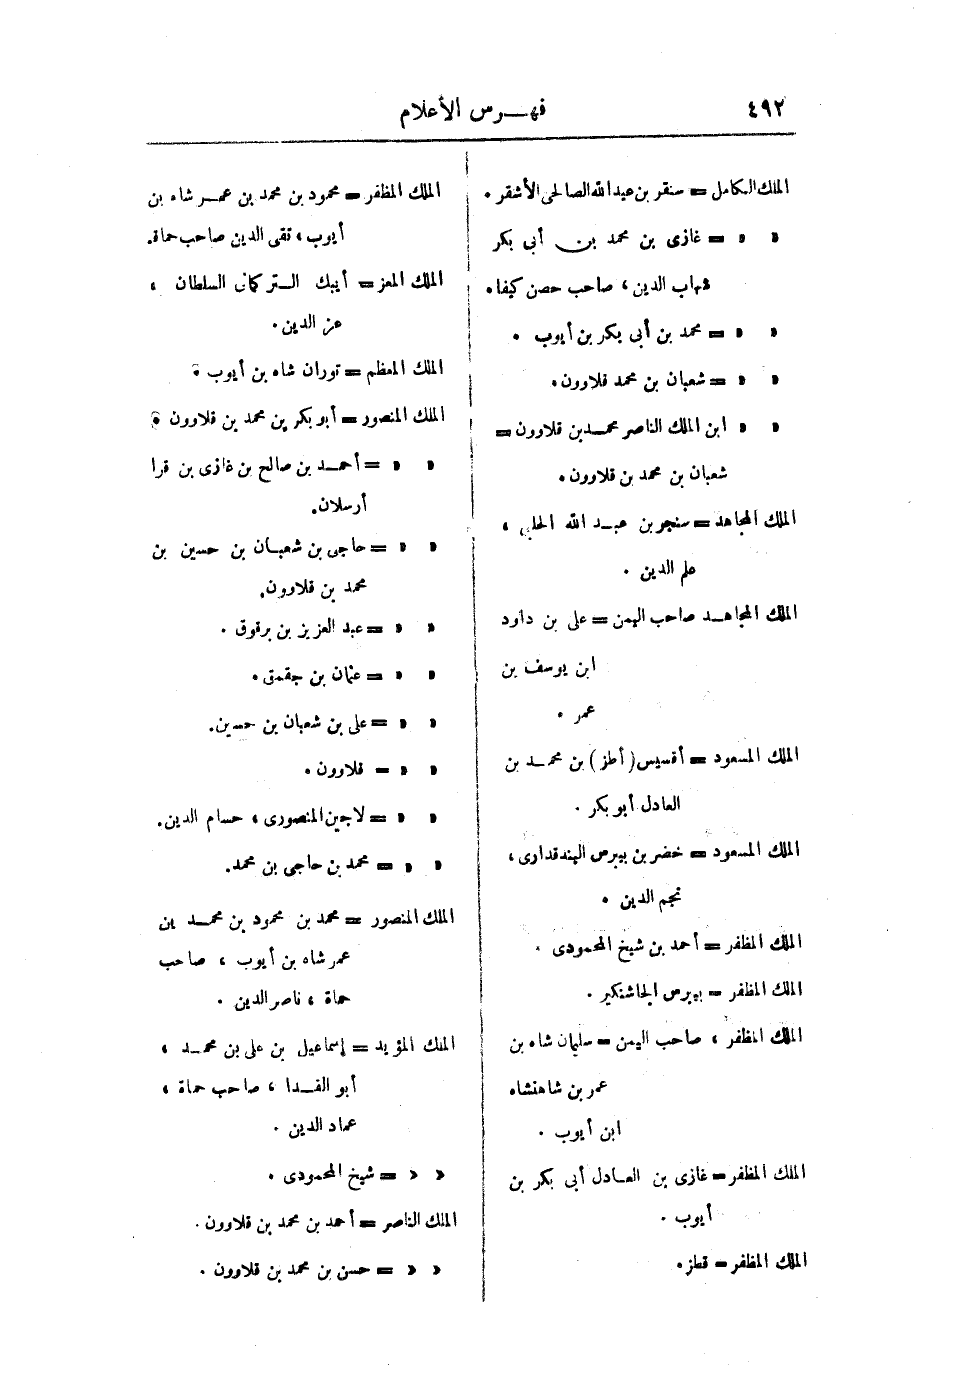 ٤٩٢
فهرس الأعلام
الملك الكامل = سنقر بن عبد الله الصالحى الأشقر .
» » = غازى بن محمد بن أبى بكر
شهاب الدين ، صاحب حصن كيفا .
» » = محمد بن أبى بكر بن أيوب .
» » = شعبان بن محمد قلاوون .
» » ابن الملك الناصر محمد بن قلاوون =
شعبان بن محمد بن قلاوون .
الملك المجاهد = سنجر بن عبد الله الحلبى ،
علم الدين .
الملك المجاهد صاحب اليمن = على بن داود
ابن يوسف بن
عمر .
الملك المسعود = أقسيس (أطز) بن محمد بن
العادل أبو بكر .
الملك المسعود = خضر بن بيبرص البندقدارى ،
نجم الدين .
الملك المظفر = أحمد بن شيخ المحمودى .
الملك المظفر = بيبرص الجاشنكير .
الملك المظفر ، صاحب اليمن = سليمان شاه بن
عمر بن شاهنشاه
ابن أيوب .
الملك المظفر = غازى بن العادل أبى بكر بن
أيوب .
الملك المظفر = قطز .
الملك المظفر = محمود بن محمد بن عمر شاه بن
أيوب ، تقى الدين صاحب حماة .
الملك المعز = أيبك التركمانى السلطان ،
عز الدين .
الملك المعظم = توران شاه بن أيوب .
الملك المنصور = أبو بكر بن محمد بن قلاوون .
» » = أحمد بن صالح بن غازى بن قرا
أرسلان .
» » = حاجى بن شعبان بن حسين بن
محمد بن قلاوون .
» » = عبد العزيز بن برقوق .
» » = عثمان بن جقمق .
» » = على بن شعبان بن حسين .
» » = قلاوون .
» » = لاجين المنصورى ، حسام الدين .
» » = محمد بن حاجى بن محمد .
الملك المنصور = محمد بن محمود بن محمد بن
عمر شاه بن أيوب ، صاحب
حماة ، ناصر الدين .
الملك المؤيد = إسماعيل بن على بن محمد ،
أبو الفدا ، صاحب حماة ،
عماد الدين .
» » = شيخ المحمودى .
الملك الناصر = أحمد بن محمد بن قلاوون .
» » = حسن بن محمد بن قلاوون .